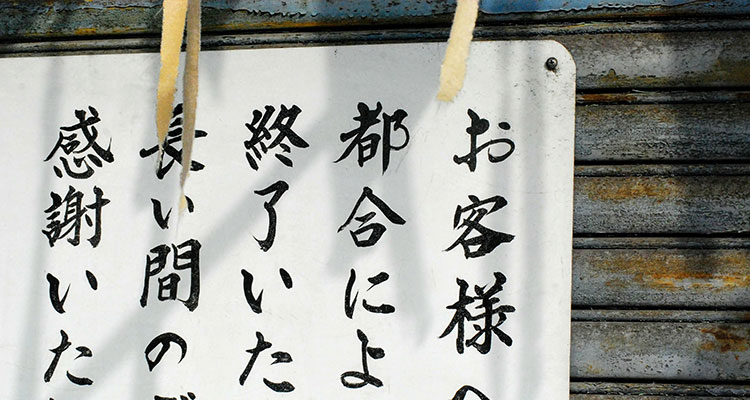 お客様の
都合によ
終了いた
長い間のご
感謝いた